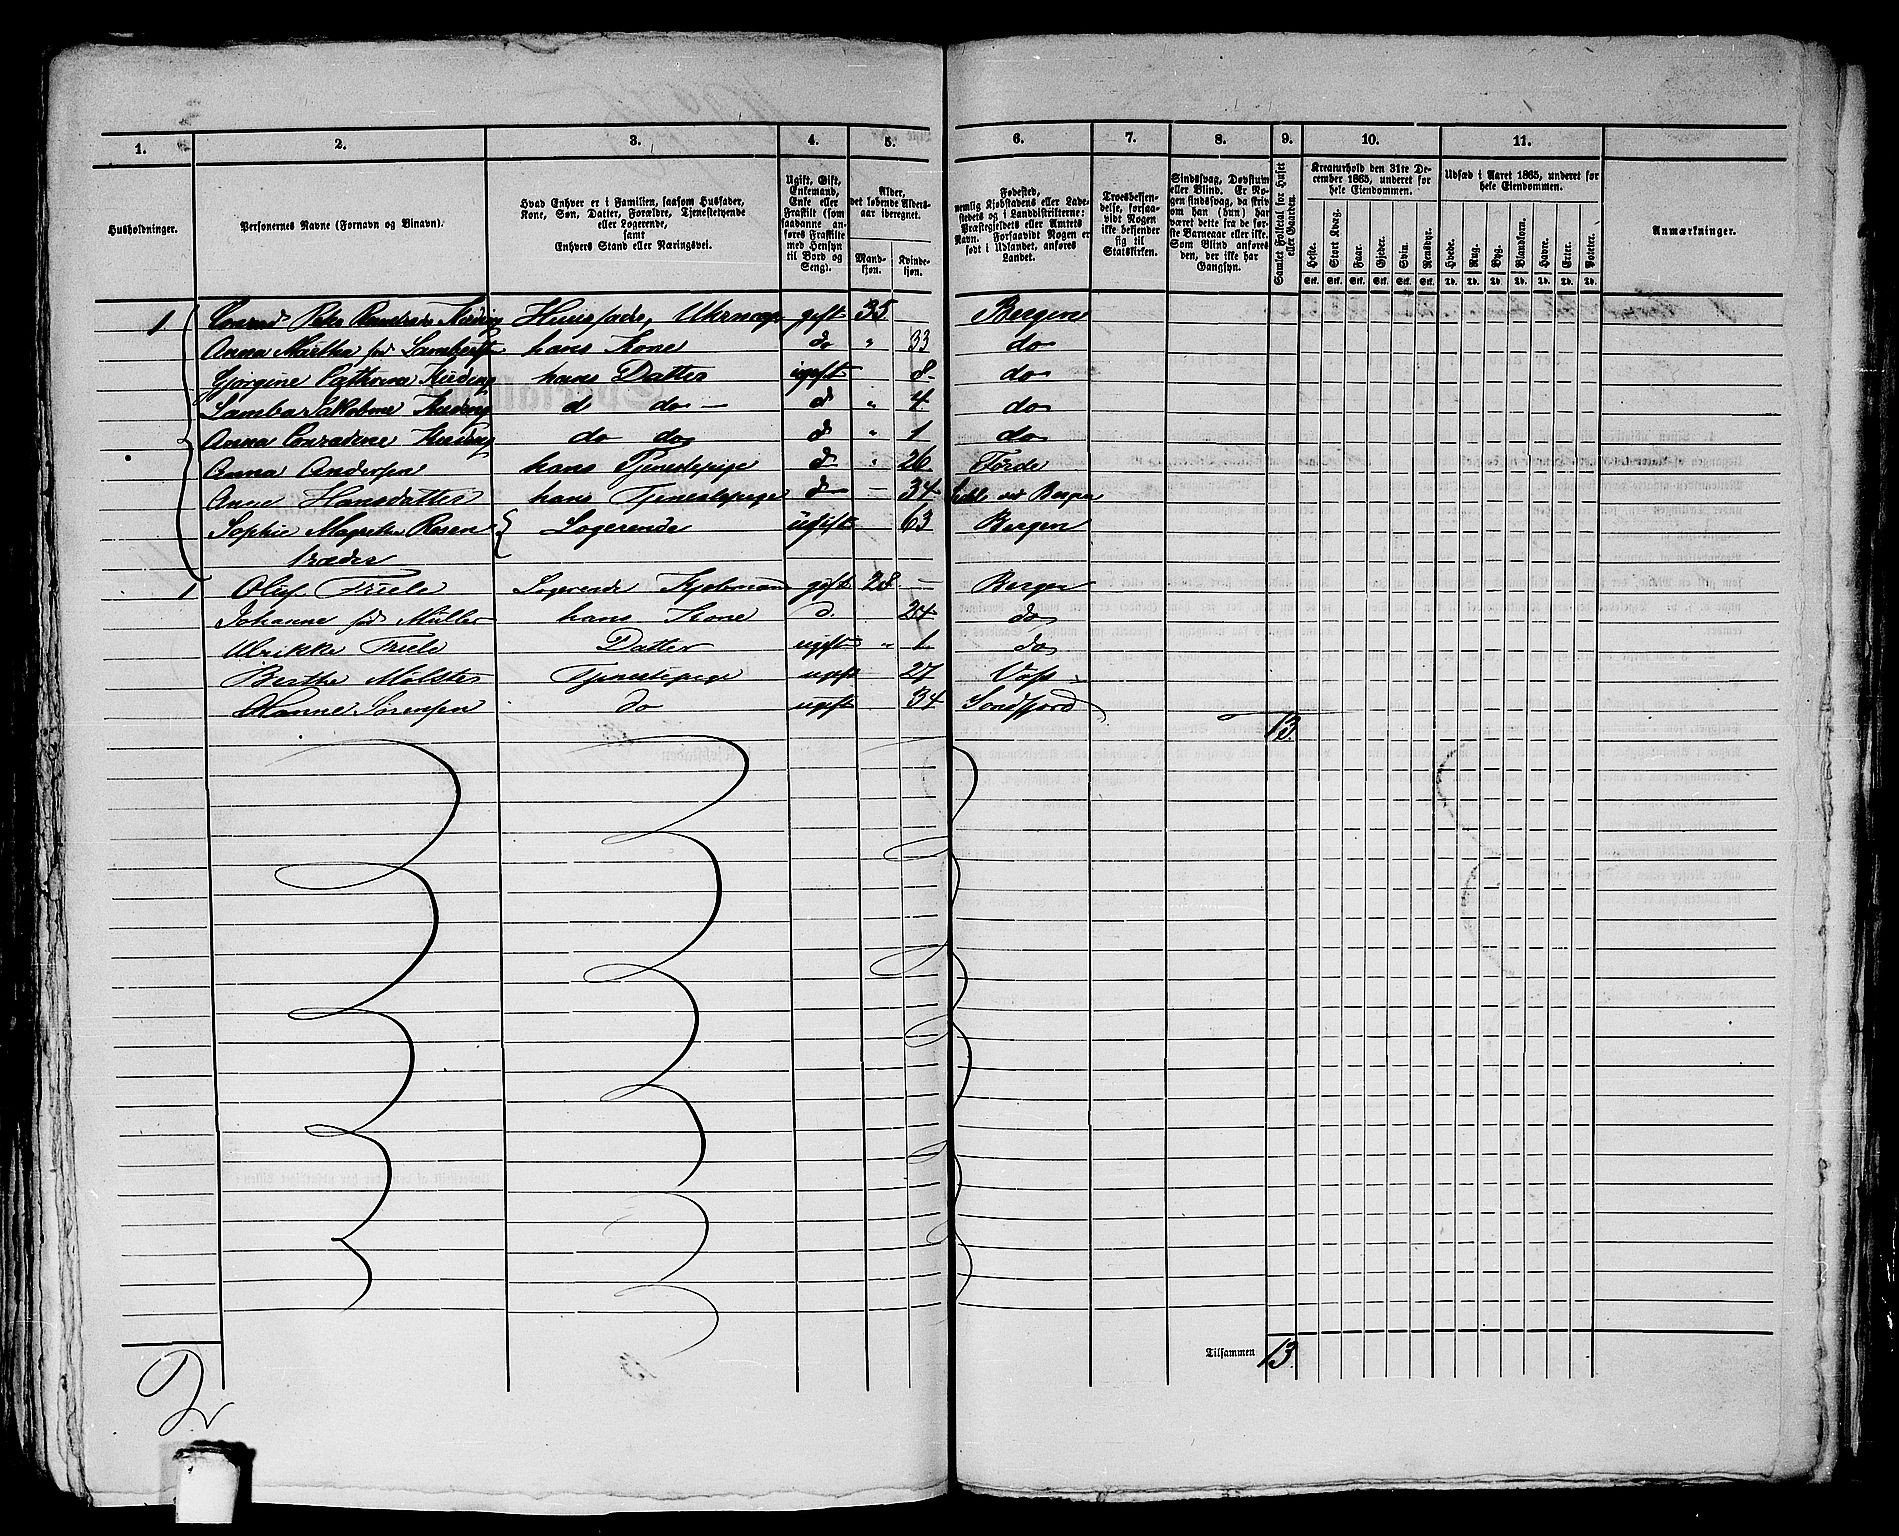 1. 2. 3. 4. 5. 6. 7. 8. 9. 10. 11.
Husholdninger.
Personernes Navne (Fornavn og Binavn).
Hvad Enhver er i Familien, saasom Husfader,
Kone, Søn, Datter, Forældre, Tjenestetyende
eller Logerende,
samt
Enhvers Stand eller Næringsvei.
Ugift, Gift,
Enkemand,
Enke eller
Fraskilt (som
saadanne an-
føres Fraskilte
med Hensyn
til Bord og
Seng).
Alder,
det løbende Alders-
aar iberegnet.
Mand-
kjøn.
Kvinde-
kjøn.
Fødested,
nemlig Kjøbstadens eller Lade-
stedets og i Landdistrikterne:
Præstegjeldets eller Amtets
Navn. Forsaavidt Nogen er
født i Udlandet, anføres
Landet.
Troesbekjen-
delse, forsaa-
vidt Nogen
ikke bekjender
sig til
Statskirken.
Sindssvag, Døvstum
eller Blind. Er No-
gen sindssvag, da skriv
om han (hun) har
været dette fra de før-
ste Barneaar eller ikke.
Som Blind anføres
den, der ikke har
Gangsyn.
Samlet Folketal for Huset
eller Gaarden.
Kreaturhold den 31te De-
cember 1865, underet for
hele Eiendommen.
Heste. Stort Kvæg. Faar. Gjeder. Svin. Rensdyr.
Stk. Stk. Stk. Stk. Stk. Stk.
Udsæd i Aaret 1865, underet for
hele Eiendommen.
Hvede. Rug. Byg. Blandkorn. Havre. Erter. Poteter.
Td. Td. Td. Td. Td. Td. Td.
Anmærkninger.
1 Huusfader, gift 35 Bergen
Anna Martha fød hans Kone do " 33 do
Gjørgine hans Datter ugift 8 do
d do d " 4 do
Anna Conradine do do d " 1 do
Anna Andersen hans Tjenestepige d " 26 Førde
Anne Hansdatter hans Tjenestepige d 34 ved Bergen
Sophie Magrethe Rosen Logerende ugift 63 Bergen
træder
1 Oluf Friele Logerende Kjøbmand gift 28 Bergen
Johanne fød Müller hans Kone d. 24 do
Ulrikke Friele Datter ugift " 1 do
Berthe Mølster Tjenestepige ugift 27 Voss
Hanne Sørensen do ugift 34 Sondfjord
13
Tilsammen 13